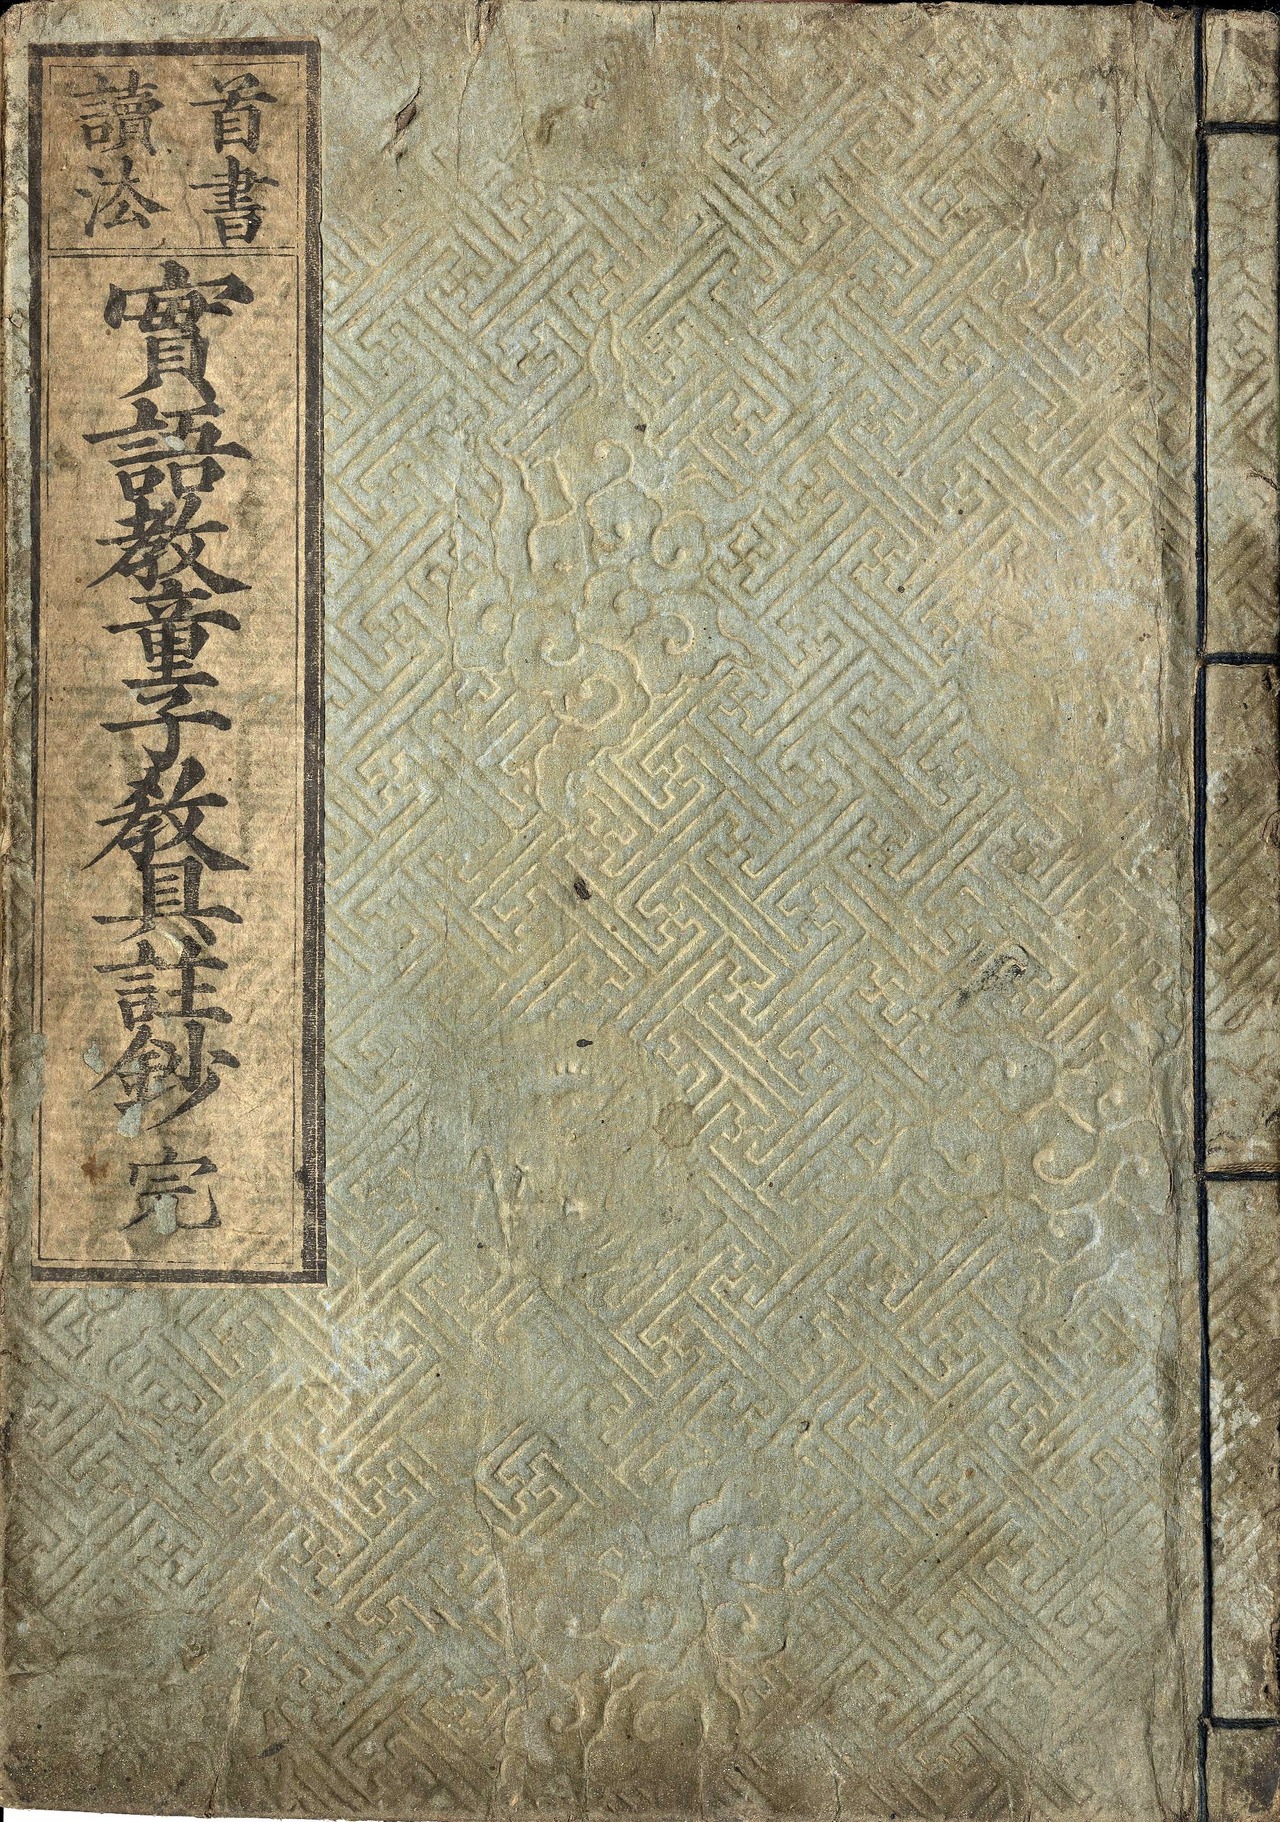 首書
讀法
實語教童子教具註鈔 完